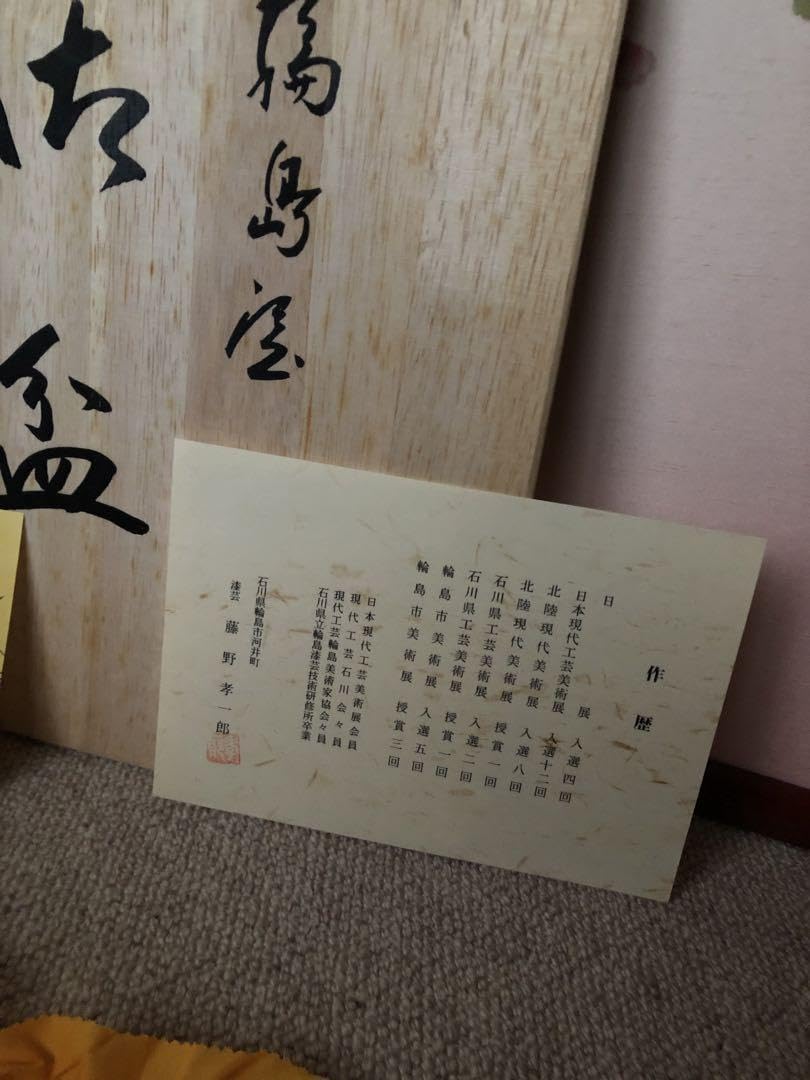 輪島塗
盆
作歴
日展 入選四回
日本現代工芸美術展 入選十二回
北陸現代美術展 入選八回
北陸現代美術展 授賞一回
石川県工芸美術展 入選二回
石川県工芸美術展 授賞一回
輪島市美術展 入選五回
輪島市美術展 授賞三回
日本現代工芸美術展会員
現代工芸石川会々員
現代工芸輪島美術家協会々員
石川県立輪島漆芸技術研修所卒業
石川県輪島市河井町
漆芸 藤野孝一郎